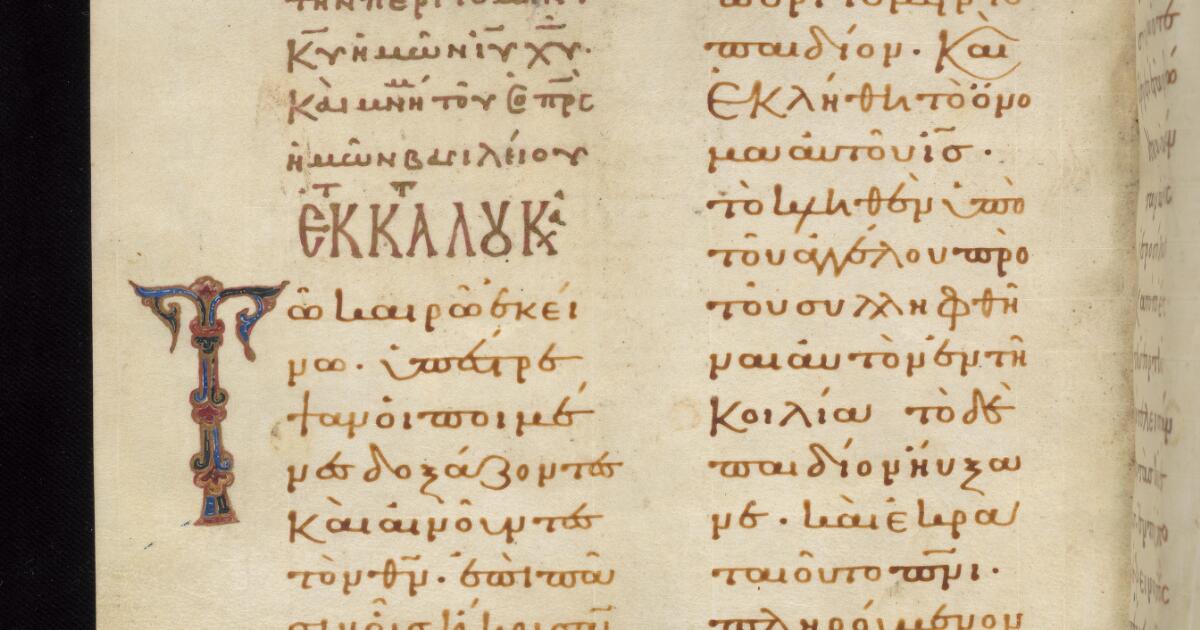 τὴν περιτομὴν τοῦ
κ̅υ̅ ἡμῶν ἰ̅υ̅ χ̅υ̅·
καὶ μνή τοῦ ἐν ἁ π̅ρ̅ς
ἡμῶν βασιλείου
ἐκ τ κατ λουκᾶ
Τῶ καιρῶ ἐκεί
νω· ὑπέστρε
ψαν οἱ ποιμέ
νες δοξάζοντες
καὶ αἰνοῦντες
τὸν θ̅ν̅· ἐπὶ πᾶ
παιδίον· καὶ
ἐκλήθη τὸ ὄνο
μα αὐτοῦ ι̅σ̅·
τὸ κληθὲν ὑπὸ
τοῦ ἀγγέλου πρὸ
τοῦ συλληφθῆ
ναι αὐτὸν ἐν τῆ
κοιλία τὸ δὲ
παιδίον ηὔξα
νε· καὶ ἐκρα
ταιοῦτο π̅ν̅ι·
πληρούμενον